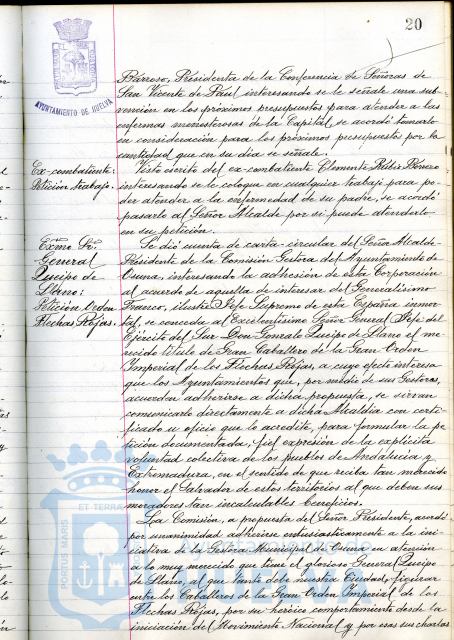 20
AYUNTAMIENTO DE HUELVA
Barroso, Presidenta de la Conferencia de Señoras de
San Vicente de Paul interesando se le señale una sub-
vención en los próximos presupuestos para atender a las
enfermas menesterosas de la Capital, se acordó tomarlo
en consideración para los próximos presupuestos por la
cantidad que en su dia se señale.
Ex-combatiente:
Petición trabajo.
Visto escrito del ex-combatiente Clemente Rubio Romero
interesando se le coloque en cualquier trabajo para po-
der atender a la enfermedad de su padre, se acordó
pasarlo al Señor Alcalde por si puede atenderlo
en su petición.
Excmo Sr.
General
Queipo de
Llano:
Petición Orden
Flechas Rojas.
Se dió cuenta de carta-circular del Señor Alcalde-
Presidente de la Comisión Gestora del Ayuntamiento de
Osuna, interesando la adhesión de esta Corporación
al acuerdo de aquella de interesar del Generalísimo
Franco, ilustre Jefe Supremo de esta España inmor-
tal, se conceda al Excelentísimo Señor General Jefe del
Ejército del Sur Don Gonzalo Queipo de Llano el me-
recido título de Gran Caballero de la Gran Orden
Imperial de las Flechas Rojas, a cuyo efecto interesa
que los Ayuntamientos que, por medio de sus Gestoras,
acuerden adherirse a dicha propuesta, se sirvan
comunicarlo directamente a dicha Alcaldía con certi-
ficado u oficio que lo acredite, para formular la pe-
tición documentada, fiel expresión de la explícita
voluntad colectiva de los pueblos de Andalucia y
Extremadura, en el sentido de que reciba tan merecido
honor el Salvador de estos territorios al que deben sus
moradores tan incalculables beneficios.
La Comisión, a propuesta del Señor Presidente, acordó
por unanimidad adherirse entusiasticamente a la ini-
ciativa de la Gestora Municipal de Osuna en atención
a lo muy merecido que tiene el glorioso General Queipo
de Llano, al que tanto debe nuestra Ciudad, figurar
entre los Caballeros de la Gran Orden Imperial de las
Flechas Rojas, por su heroico comportamiento desde la
iniciación del Movimiento Nacional y por esas sus charlas
PORTUS MARIS ET TERRAE